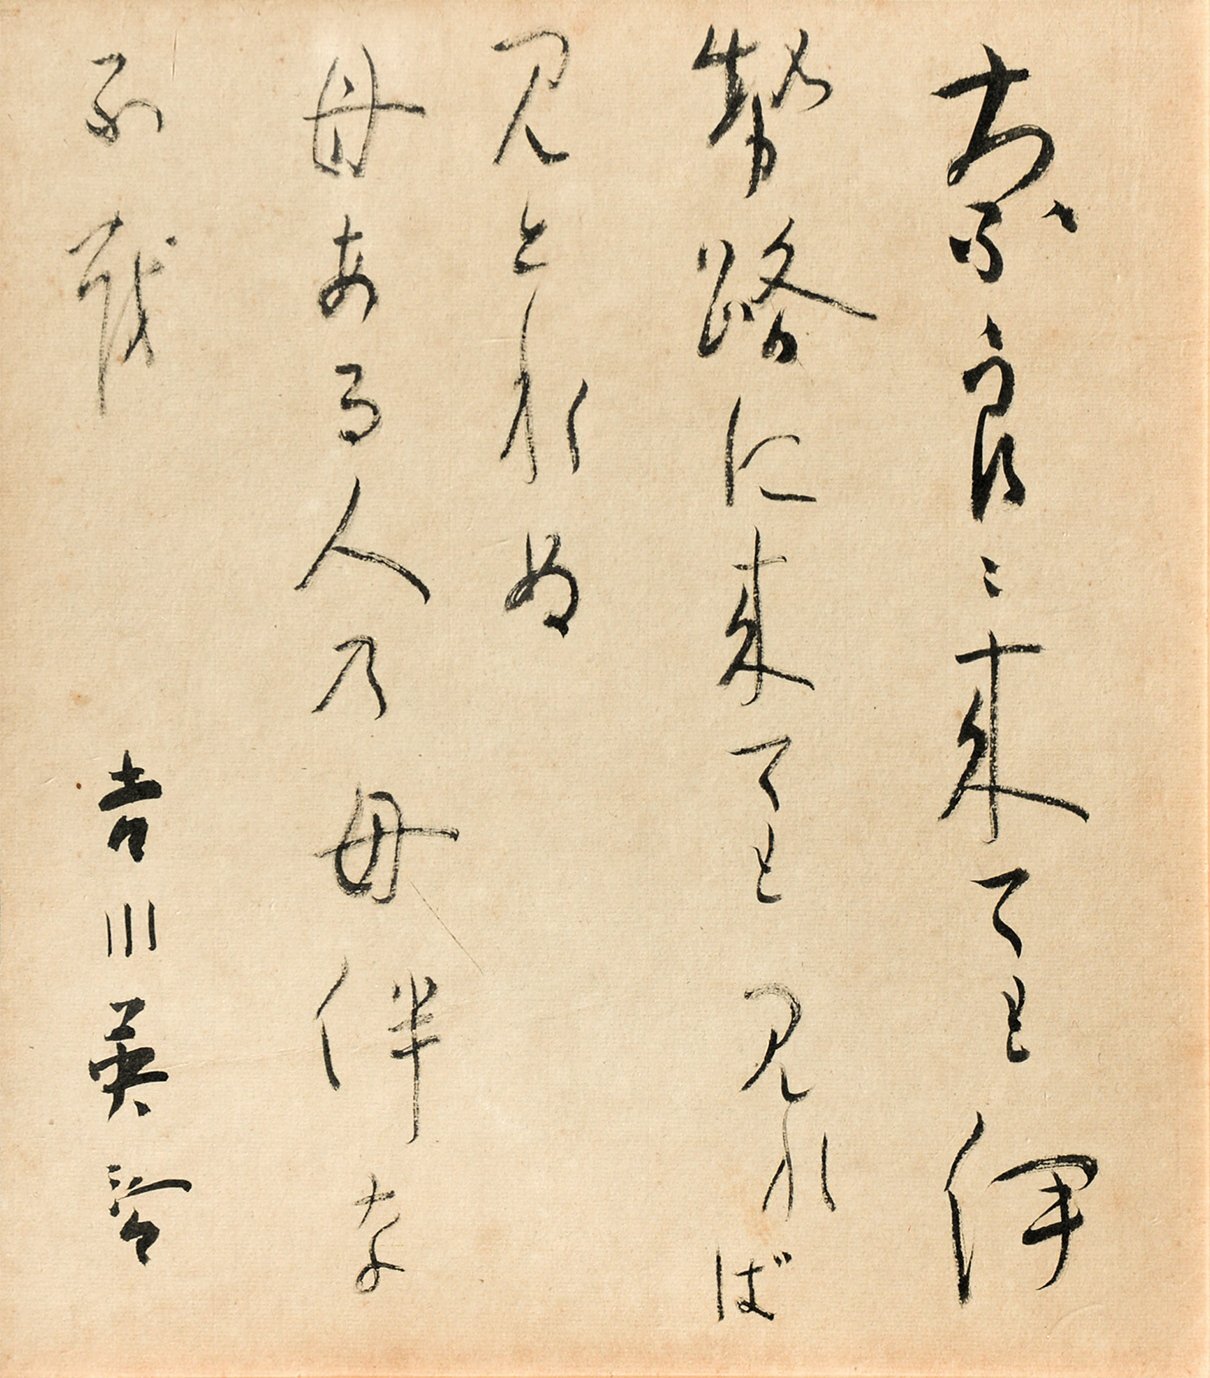 奈良ニ来ても伊
勢路に来ても見れば
見とれぬ
母ある人乃母伴な
不越
吉川英治